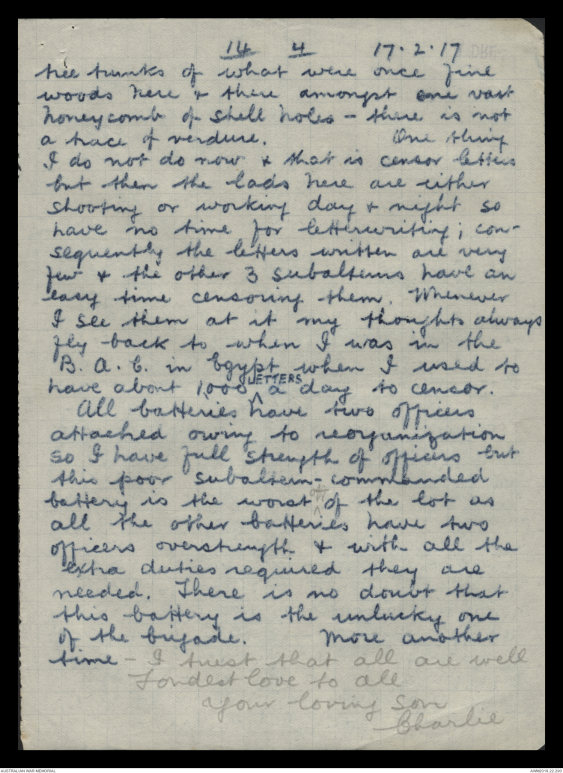 14 4 17.2.17
tree trunks of what were once fine
woods here & there amongst one vast
honeycomb of shell holes – there is not
a trace of verdure. One thing
I do not do now & that is censor letters
but then the lads here are either
shooting or working day & night so
have no time for letterwriting; con-
sequently the letters written are very
few & the other 3 subalterns have an
easy time censoring them. Whenever
I see them at it my thoughts always
fly back to when I was in the
B.A.C. in Egypt when I used to
have about 1,000 LETTERS a day to censor.
All batteries have two officers
attached owing to reorganization
so I have full strength of officers but
this poor subaltern-commanded
battery is the worst off of the lot as
all the other batteries have two
officers overstrength & with all the
extra duties required they are
needed. There is no doubt that
this battery is the unlucky one
of the brigade. More another
time – I trust that all are well
Fondest love to all
Your loving son
Charlie
AUSTRALIAN WAR MEMORIAL